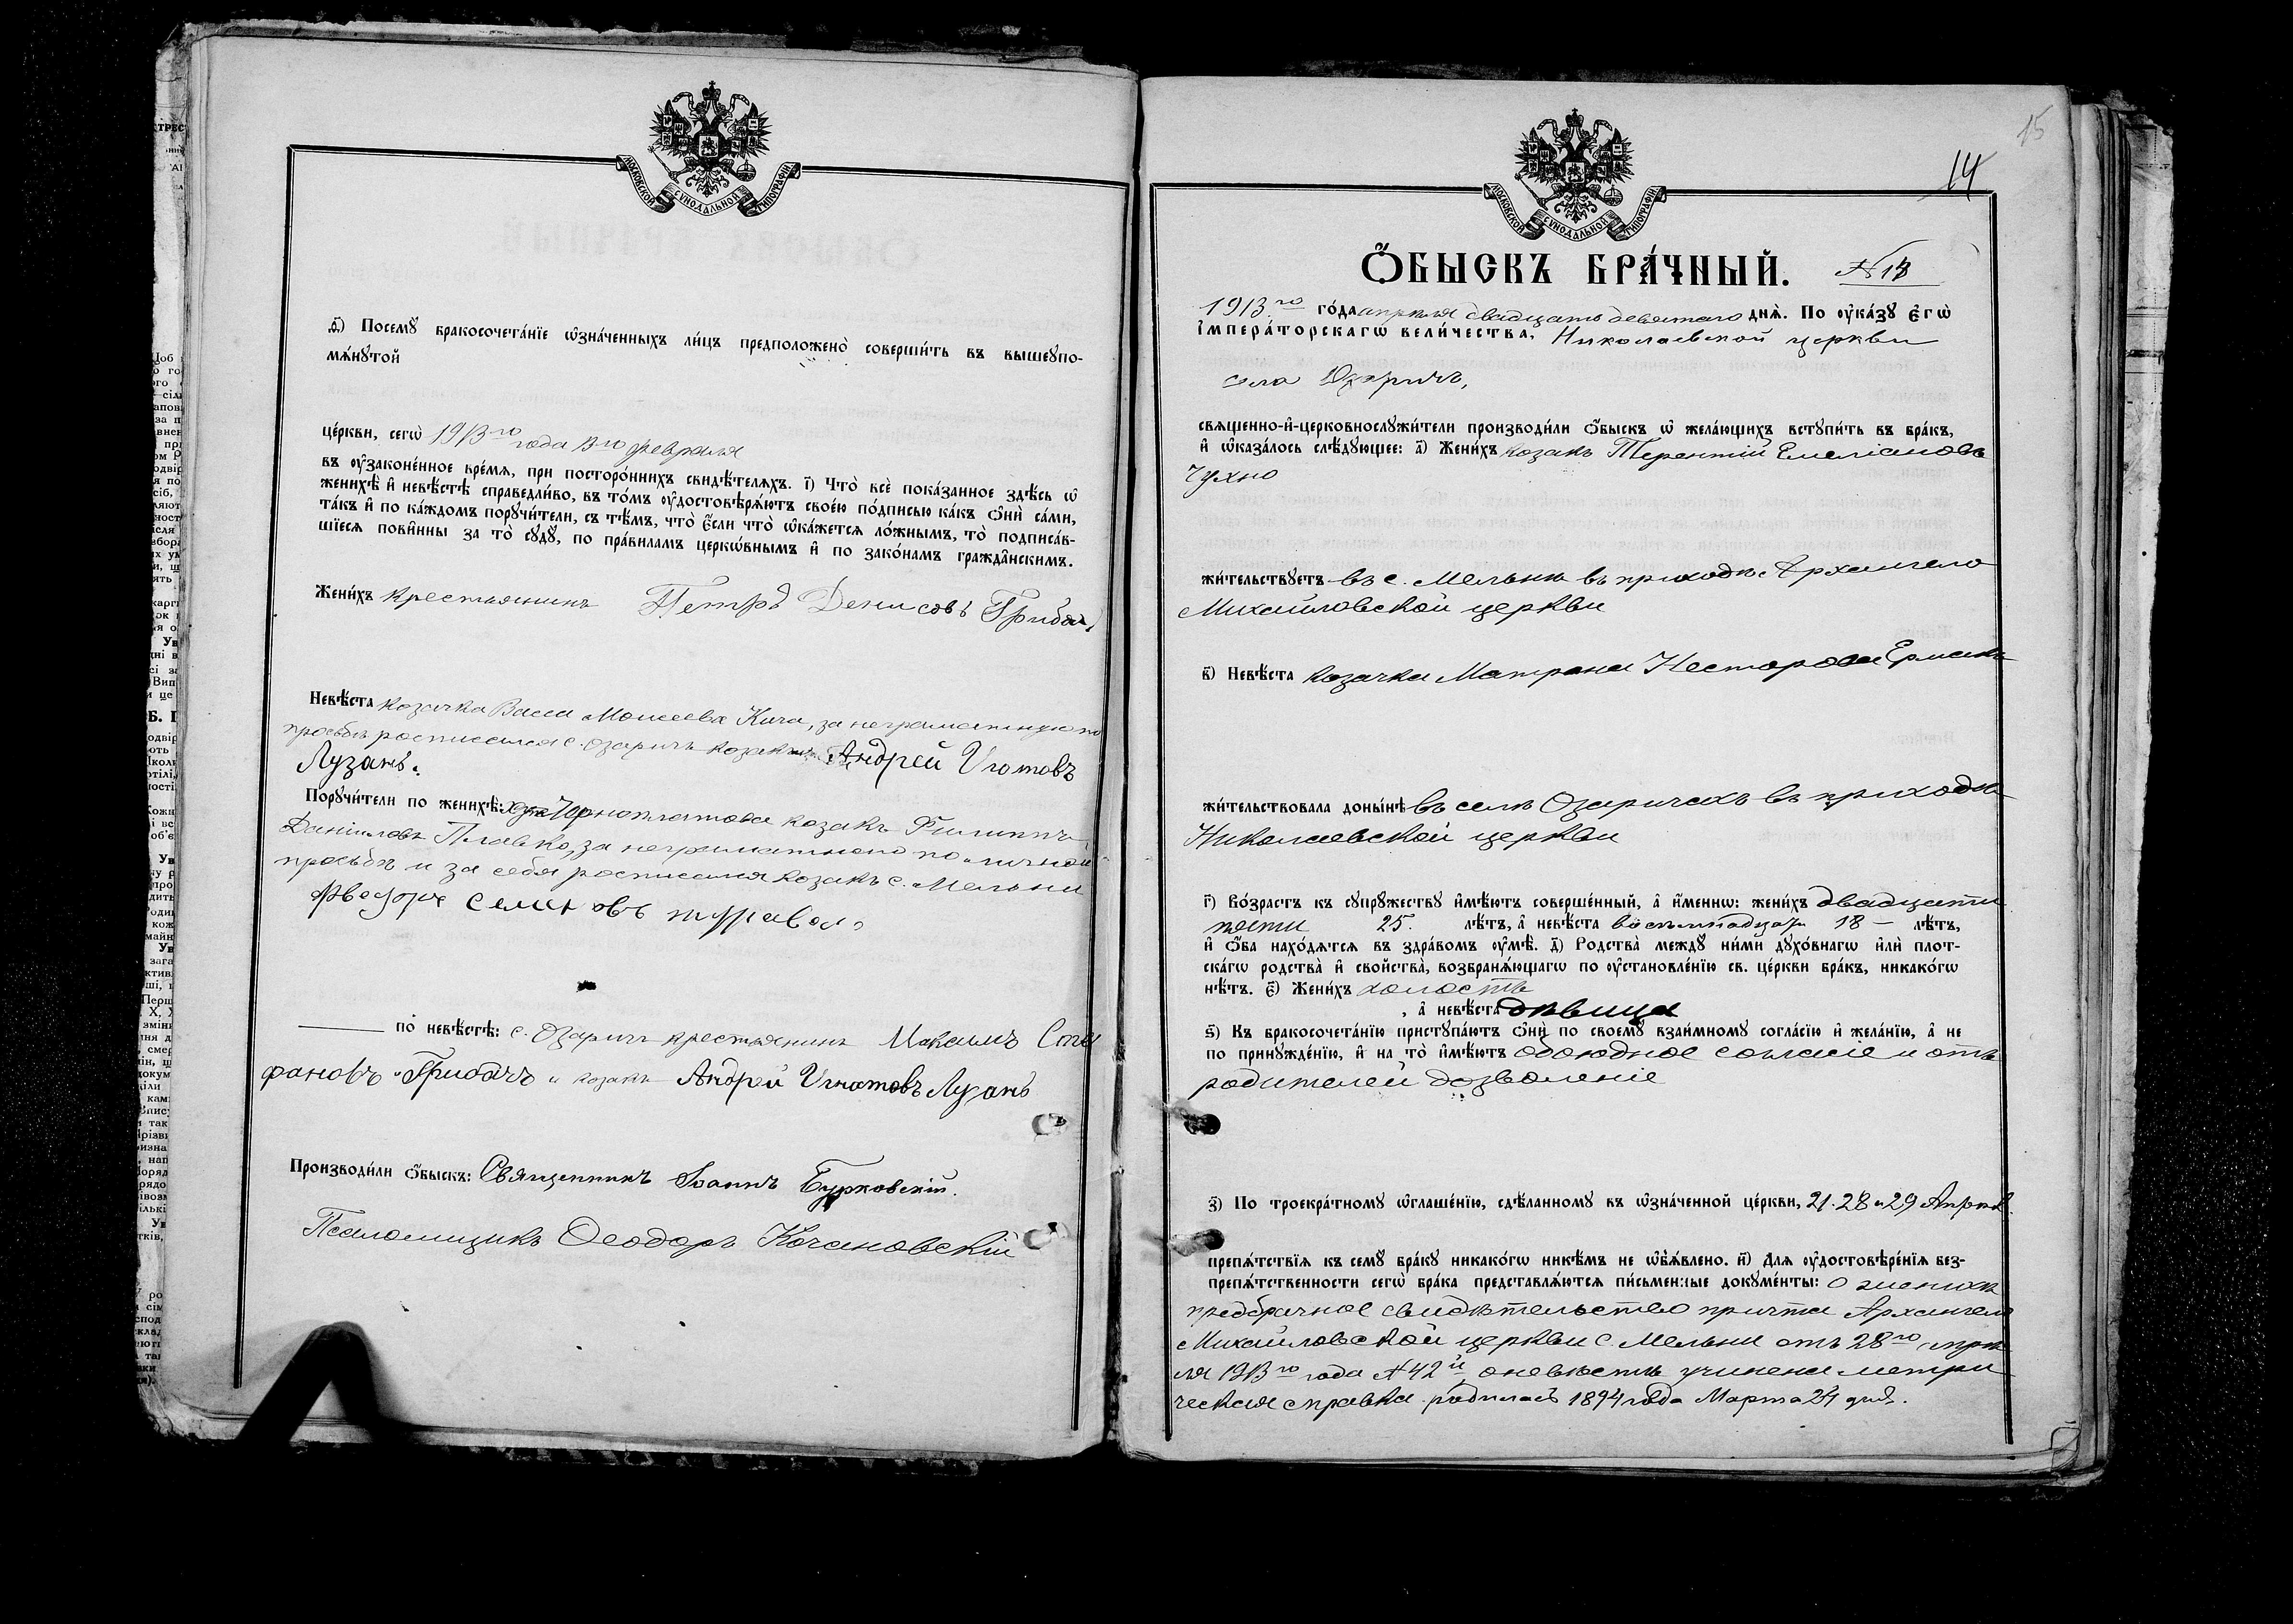 МОСКОВСКОЙ СѴНОДАЛЬНОЙ ТИПОГРАФІИ
Посемꙋ бракосочета́нїе ѡзна́ченныхъ ли́цъ предположено̀ соверши́ть въ вышеꙋпо-
мѧ́нꙋтой
це́ркви, сегѡ̀ 1913го года 13го февраля
въ ᲂу҆законе́нное вре́мѧ, при посторо́ннихъ свидѣ́телѧхъ. і҃) Что̀ всѐ пока́занное здѣ́сь ѡ
женихѣ̀ и҆ невѣ́стѣ справедли́во, въ то́мъ ᲂу҆достовѣрѧ́ютъ свое́ю по́дписью ка́къ ѻ҆нѝ са́ми,
та́къ и҆ по ка́ждомъ порꙋчи́тели, съ тѣ́мъ, что̀ є҆́сли что̀ ѡка́жетсѧ ло́жнымъ, то̀ подписа́в-
шїесѧ пови́нны за то̀ сꙋдꙋ̀, по пра́виламъ церко́внымъ и҆ по зако́намъ гражда́нскимъ.
Жени́хъ крестьянинъ Петръ Денисовъ Грибачъ
Невѣ́ста козачка Васса Моисеева Кича, за неграмотную по
просьбѣ росписался с. Озаричъ козакъ Андрей Игнатовъ
Лузанъ.
Порꙋчи́тели по женихѣ̀: Чорноплатова козакъ Филиппъ
Даніиловъ Плавко, за неграмотного по личной
просьбѣ и за себя росписался козакъ с. Мельни
Фведоръ Семеновъ журавель
по невѣ́стѣ: с. Озаричъ крестьянинъ Макаимъ Сте
фановъ Грибачъ и козакъ Андрей Игнатовъ Лузанъ
Производи́ли ѻ҆́быскъ: Священникъ Іоаннъ Бурковскій.
Псаломщикъ Ѳеодоръ Кочановскій
15
14
МОСКОВСКОЙ СѴНОДАЛЬНОЙ ТИПОГРАФІИ
Ѻ҆́БЫСКЪ БРА́ЧНЫЙ. N 14
1913го го́да апрѣля двадцать девятаго днѧ̀. По ᲂу҆ка́зꙋ Є҆гѡ̀
І҆мпера́торскагѡ вели́чества, Николаевской церкви
села Озаричъ,
свѧще́нно-и҆-церковнослꙋжи́тели производи́ли ѻ҆́быскъ ѡ жела́ющихъ встꙋпи́ть въ бра́къ,
и҆ ѡказа́лось слѣ́дꙋющее: а҃) Жени́хъ козакъ Терентій Емеліановъ
Чухно
жи́тельствꙋетъ въ с. Мельни въ приходѣ Архангело
Михайловской церкви
в҃) Невѣ́ста козачка Матрона Несторова Ермакъ
жи́тельствовала доны́нѣ въ селѣ Озаричахъ въ приходѣ
Николаевской церкви
г҃) Во́зрастъ къ сꙋпрꙋ́жествꙋ и҆мѣ́ютъ соверше́нный, а҆ и҆́меннѡ: жени́хъ двадцати
пяти 25. лѣ́тъ, а҆ невѣ́ста восьмнадцать 18 – лѣ́тъ,
и҆ ѻ҆́ба нахо́дѧтсѧ въ здра́вомъ ᲂу҆мѣ̀. д҃) Родства̀ междꙋ̀ ни́ми дꙋхо́внагѡ и҆лѝ плот-
ска́гѡ родства̀ и҆ сво́йства, возбранѧ́ющагѡ по ᲂу҆становле́нїю св. це́ркви бра́къ, никако́гѡ
нѣ́тъ. є҃) Жени́хъ холостъ
, а҆ невѣ́ста дѣвица
ѕ҃) Къ бракосочета́нїю пристꙋпа́ютъ ѻ҆нѝ по своемꙋ̀ взаи́мномꙋ согла́сїю и҆ жела́нїю, а҆ не
по принꙋжде́нїю, и҆ на то̀ и҆мѣ́ютъ обоюдное согласіе и отъ
родителей дозволеніе
з҃) По троекра́тномꙋ ѡглаше́нїю, сдѣ́ланномꙋ въ ѡзна́ченной це́ркви, 21. 28 и 29 Апрѣл.
препѧ́тствїѧ къ семꙋ̀ бра́кꙋ никако́гѡ никѣ́мъ не ѡб̾ѧ́влено. и҃) Длѧ ᲂу҆достовѣре́нїѧ без-
препѧ́тственности сегѡ̀ бра́ка представлѧ́ютсѧ пи́сьменные докꙋме́нты: О женихѣ
предбрачное свидѣтельство причта Архангело
Михайловской церкви с. Мельни отъ 28го апрѣ
ля 1913го года N 42й, о невѣстѣ учинена метри
ческая справка. родилась 1894 года Марта 24 дня.